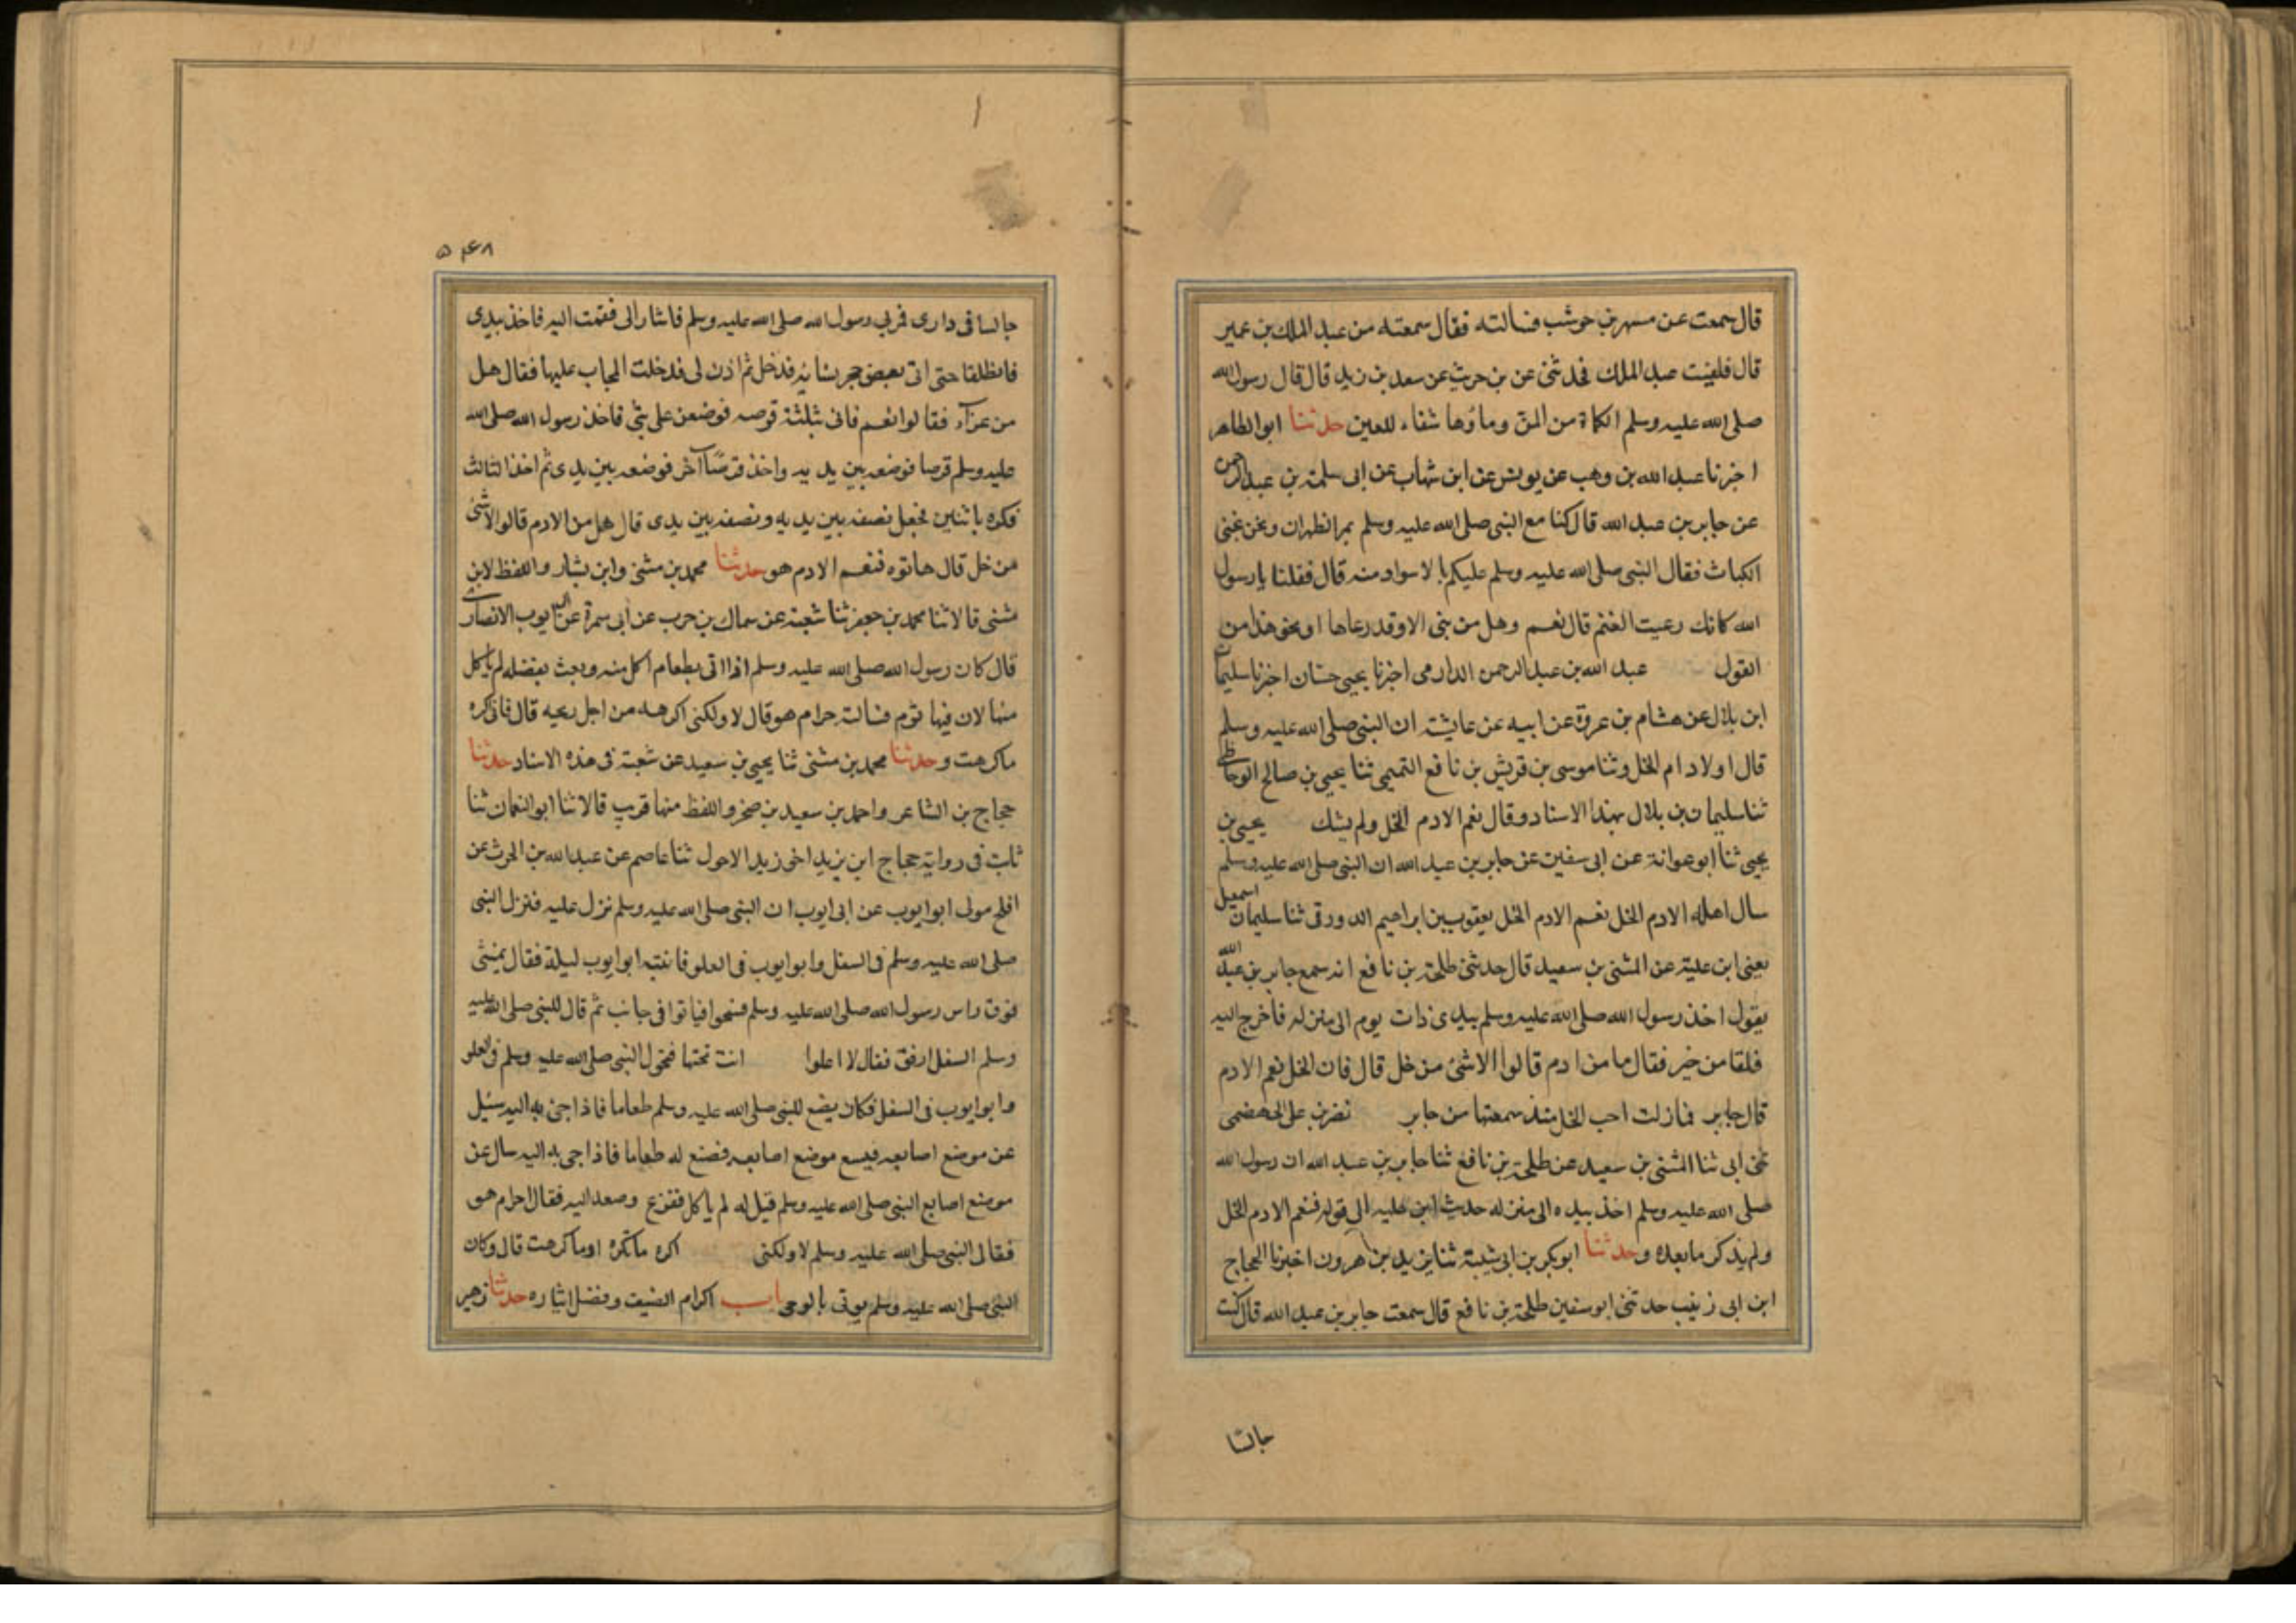 قال سمعت عن مسهر بن حوشب فسالته فقال سمعته من عبد الملك بن عمير
قال فلقيت عبد الملك فحدثنى عن بن حريث عن سعد بن زيد قال قال رسول الله
صلى الله عليه وسلم الكماة من المن وماؤها شفاء للعين حدثنا ابو الطاهر
اخبرنا عبد الله بن وهب عن يونس عن ابن شهاب عن ابى سلمة بن عبد الرحمن
عن جابر بن عبد الله قال كنا مع النبى صلى الله عليه وسلم بمر الظهران ونحن نجنى
الكباث فقال النبى صلى الله عليه وسلم عليكم بالاسواد منه قال فقلنا يا رسول
الله كانك رعيت الغنم قال نعم وهل من بنى الا وقد رعاها او نحو هذا من
القول عبد الله بن عبد الرحمن الدارمى اخبرنا يحيى حسان اخبرنا سليمان
ابن بلال عن هشام بن عروة عن ابيه عن عايشة ان النبى صلى الله عليه وسلم
قال اولادام الخل وثنا موسى بن قريش بن نافع التميمى ثنا يحيى بن صالح الوحاظى
ثنا سليمان بن بلال بهذا الاسناد وقال نعم الادم الخل ولم يشك يحيى بن
يحيى ثنا ابو عوانة عن ابى سفين عن جابر بن عبد الله ان النبى صلى الله عليه وسلم
سال اهله الادم الخل نعم الادم الخل يعقوب بن ابراهيم الدورقى ثنا سليمان اسمعيل
يعنى ابن علية عن المثنى بن سعيد قال حدثنى طلحة بن نافع انه سمع جابر بن عبد الله
يقول اخذ رسول الله صلى الله عليه وسلم بيدى ذات يوم الى منزله فاخرج اليه
فلقا من خبر فقال ما من ادم قالوا الا شئ من خل قال فان الخل نعم الادم
قال جابر فمازلت احب الخل منذ سمعتها من جابر نصر بن على الجهضمى
ثنى ابى ثنا المثنى بن سعيد عن طلحة بن نافع ثنا جابر بن عبد الله ان رسول الله
صلى الله عليه وسلم اخذ بيده الى منزله حديث ابن علية الى قوله فنعم الادم الخل
ولم يذكر ما بعده وحدثنا ابو بكر بن ابى شيبة ثنا يزيد بن هرون اخبرنا الحجاج
ابن ابى زينب حدثنى ابو سفين طلحة بن نافع قال سمعت جابر بن عبد الله قال كنت
جالسا
۵۴۸
جالسا فى دارى فمر بى رسول الله صلى الله عليه وسلم فاشار الى فقمت اليه فاخذ بيدى
فانطلقنا حتى اتى بعض حجر نسايه فدخل ثم اذن لى فدخلت الحجاب عليها فقال هل
من غداء فقالوا نعم فاتى بثلثة قرصه فوضعن على بتى فاخذ رسول الله صلى الله
عليه وسلم قرصا فوضعه بين يديه واخذ قرصا آخر فوضعه بين يدى ثم اخذ الثالث
فكره باثنين فجعل نصفه بين يديه ونصفه بين يدى قال هل من الادم قالوا الا شئ
من خل قال هاتوه فنعم الادم هو حدثنا محمد بن مثنى وابن بشار واللفظ لابن
مثنى قالا ثنا محمد بن جعفر ثنا شعبة عن سماك بن حرب عن ابى سمرة عن ابى ايوب الانصارى
قال كان رسول الله صلى الله عليه وسلم اذا اتى بطعام اكل منه وبعث بفضله لم ياكل
منها لان فيها ثوم فسالته حرام هو قال لا ولكنى اكرهه من اجل ريحه قال فانى اكره
ماكرهت وحدثنا محمد بن مثنى ثنا يحيى بن سعيد عن شعبة فى هذه الاسناد حدثنا
حجاج بن الشاعر واحمد بن سعيد بن صخر واللفظ منها قريب قالا ثنا ابو النعمان ثنا
ثابت فى رواية حجاج ابن يزيد اخى زيد الاحول ثنا عاصم عن عبد الله بن الحرث عن
افلح مولى ابو ايوب عن ابى ايوب ان النبى صلى الله عليه وسلم نزل عليه فنزل النبى
صلى الله عليه وسلم فى السفل وابو ايوب فى العلو فانتبه ابو ايوب ليلة فقال نمشى
فوق راس رسول الله صلى الله عليه وسلم فتنحوا فباتوا فى جانب ثم قال للنبى صلى الله عليه
وسلم السفل ارفق فقال لا اعلوا انت تحتها فتحول النبى صلى الله عليه وسلم فى العلو
وابو ايوب فى السفل فكان يضع للنبى صلى الله عليه وسلم طعاما فاذا جئ به اليه سئيل
عن موضع اصابعه فيسع موضع اصابعه فصنع له طعاما فاذا جى به اليه سال عن
موضع اصابع النبى صلى الله عليه وسلم قيل له لم ياكل ففزع وصعد اليه فقال احرام هو
فقال النبى صلى الله عليه وسلم لا ولكنى اكره ماتكره او ماكرهت قال وكان
النبى صلى الله عليه وسلم يوتى بالوحى باب اكرام الضيف وفضل ايثاره حدثنا زهير